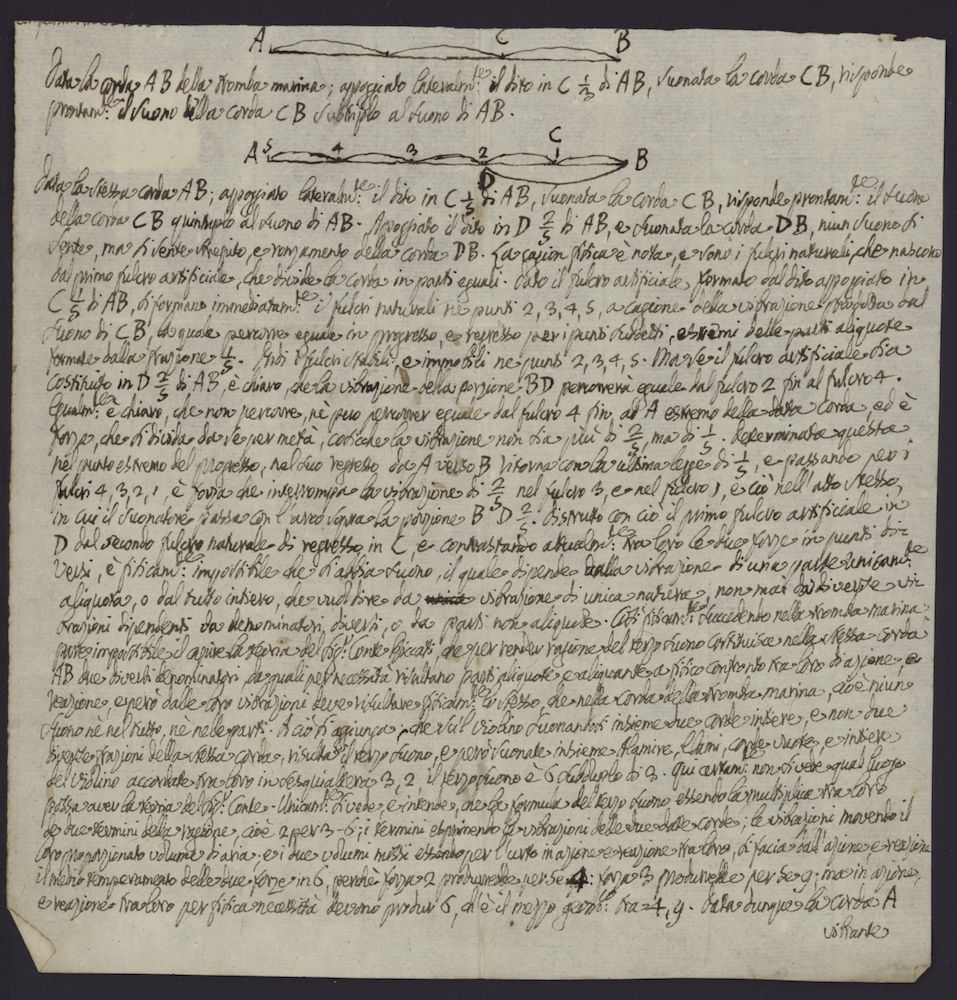 A C B
Data la corda AB della tromba marina; appoggiato lateralm:te il dito in C 1/3 di AB, suonata la corda CB, risponde
prontam:te il suono della corda CB subtriplo al suono di AB.
A 5 4 3 2 1 C B
D
Data la stessa corda AB; appoggiato lateralm:te il dito in C 1/5 di AB, suonata la corda CB, risponde prontam:te il suono
della corda CB quintuplo al suono di AB. Appoggiato il dito in D 2/5 di AB, e suonata la corda DB, niun suono si
sente, ma si sente strepito, e ronzamento della corda DB. La cagion fisica è nota, e sono i fulcri naturali, che nascono
dal primo fulcro artificiale, che divide la corda in parti eguali. Dato il fulcro artificiale formato dal dito appoggiato in
C 1/5 di AB, si formano immediatam:te i fulcri naturali ne punti 2, 3, 4, 5, a cagione della vibrazione prodotta dal
suono di CB, la quale percorre eguale in progresso, e regresso per i punti sudetti, estremi delle parti aliquote
formate dalla frazione 1/5. Indi i fulcri stabili, e immobili ne punti 2, 3, 4, 5. Ma se il fulcro artificiale sia
costituito in D 2/5 di AB, è chiaro, che la vibrazione della porzione BD percorrerà eguale dal fulcro 2 fin al fulcro 4.
Egualm:te è chiaro, che non percorre, nè può percorrer eguale dal fulcro 4 fin ad A estremo della data corda, ed è
forza, che si divida da se per metà, cosicche la vibrazione non sia più di 2/5, ma di 1/5. Determinata questa
nel punto estremo del progresso, nel suo regresso da A verso B ritorna con la ultima legge di 1/5, e passando per i
fulcri 4, 3, 2, 1, è forza che interrompa la vibrazione di 2/5 nel fulcro 3, e nel fulcro 1, e ciò nell'atto stesso,
in cui il suonatore passa con l'arco sopra la porzione B D 2/5. Distrutto con ciò il primo fulcro artificiale in
D dal secondo fulcro naturale di regresso in C, e contrastando attualm:te tra loro le due forze in punti di-
versi, è fisicam:te impossibile che si abbia suono, il quale dipende dalla vibrazione di una parte unicam:te
aliquota, o dal tutto intiero, che vuol dire da vibrazione di unica natura, non mai da diverse vi-
brazioni dipendenti da denominatori diversi, o da parti non aliquote. Così fisicam:te succedendo nella tromba marina
parte impossibile il capire la teoria del Sig:r Conte Riccati, che per render ragione del terzo suono costituisce nella stessa corda
AB due diversi denominatori, da quali per necessità risultano parti aliquote, e aliquante a fisico confronto tra loro di azione, e
reazione, e però dalle loro vibrazioni deve risultare fisicam:te lo stesso, che nella corda della tromba marina, cioè niun
suono nè nel tutto, nè nelle parti. A ciò si aggiunga, che su'l violino suonandosi insieme due corde intiere, e non due
frazioni della stessa corda, risulta il terzo suono, e però suonate insieme Alamire, Elami, corde vuote, e intiere
del violino accordate tra loro in sesquialtera 3, 2, il terzo suono è 6 subduplo di 3. Qui certam:te non si vede qual luogo
possa aver la teoria del Sig:r Conte. Unicam:te si vede, e intende, che la formula del terzo suono essendo la multiplica tra loro
de due termini della ragione, cioè 2 per 3 = 6; i termini esprimendo le vibrazioni delle due date corde; le vibrazioni movendo il
loro proporzionato volume d'aria; e i due volumi mossi essendo per l'urto in azione e reazione tra loro, si faccia dall'azione, e reazione
il medio temperamento delle due forze in 6, perchè forza 2 produrrebbe per se 4; forza 3 produrrebbe per se 9; ma in azione,
e reazione tra loro per fisica necessità devono produr 6, ch'è il mezzo geom:co tra 4, 9. Data dunque la corda A
vibrante